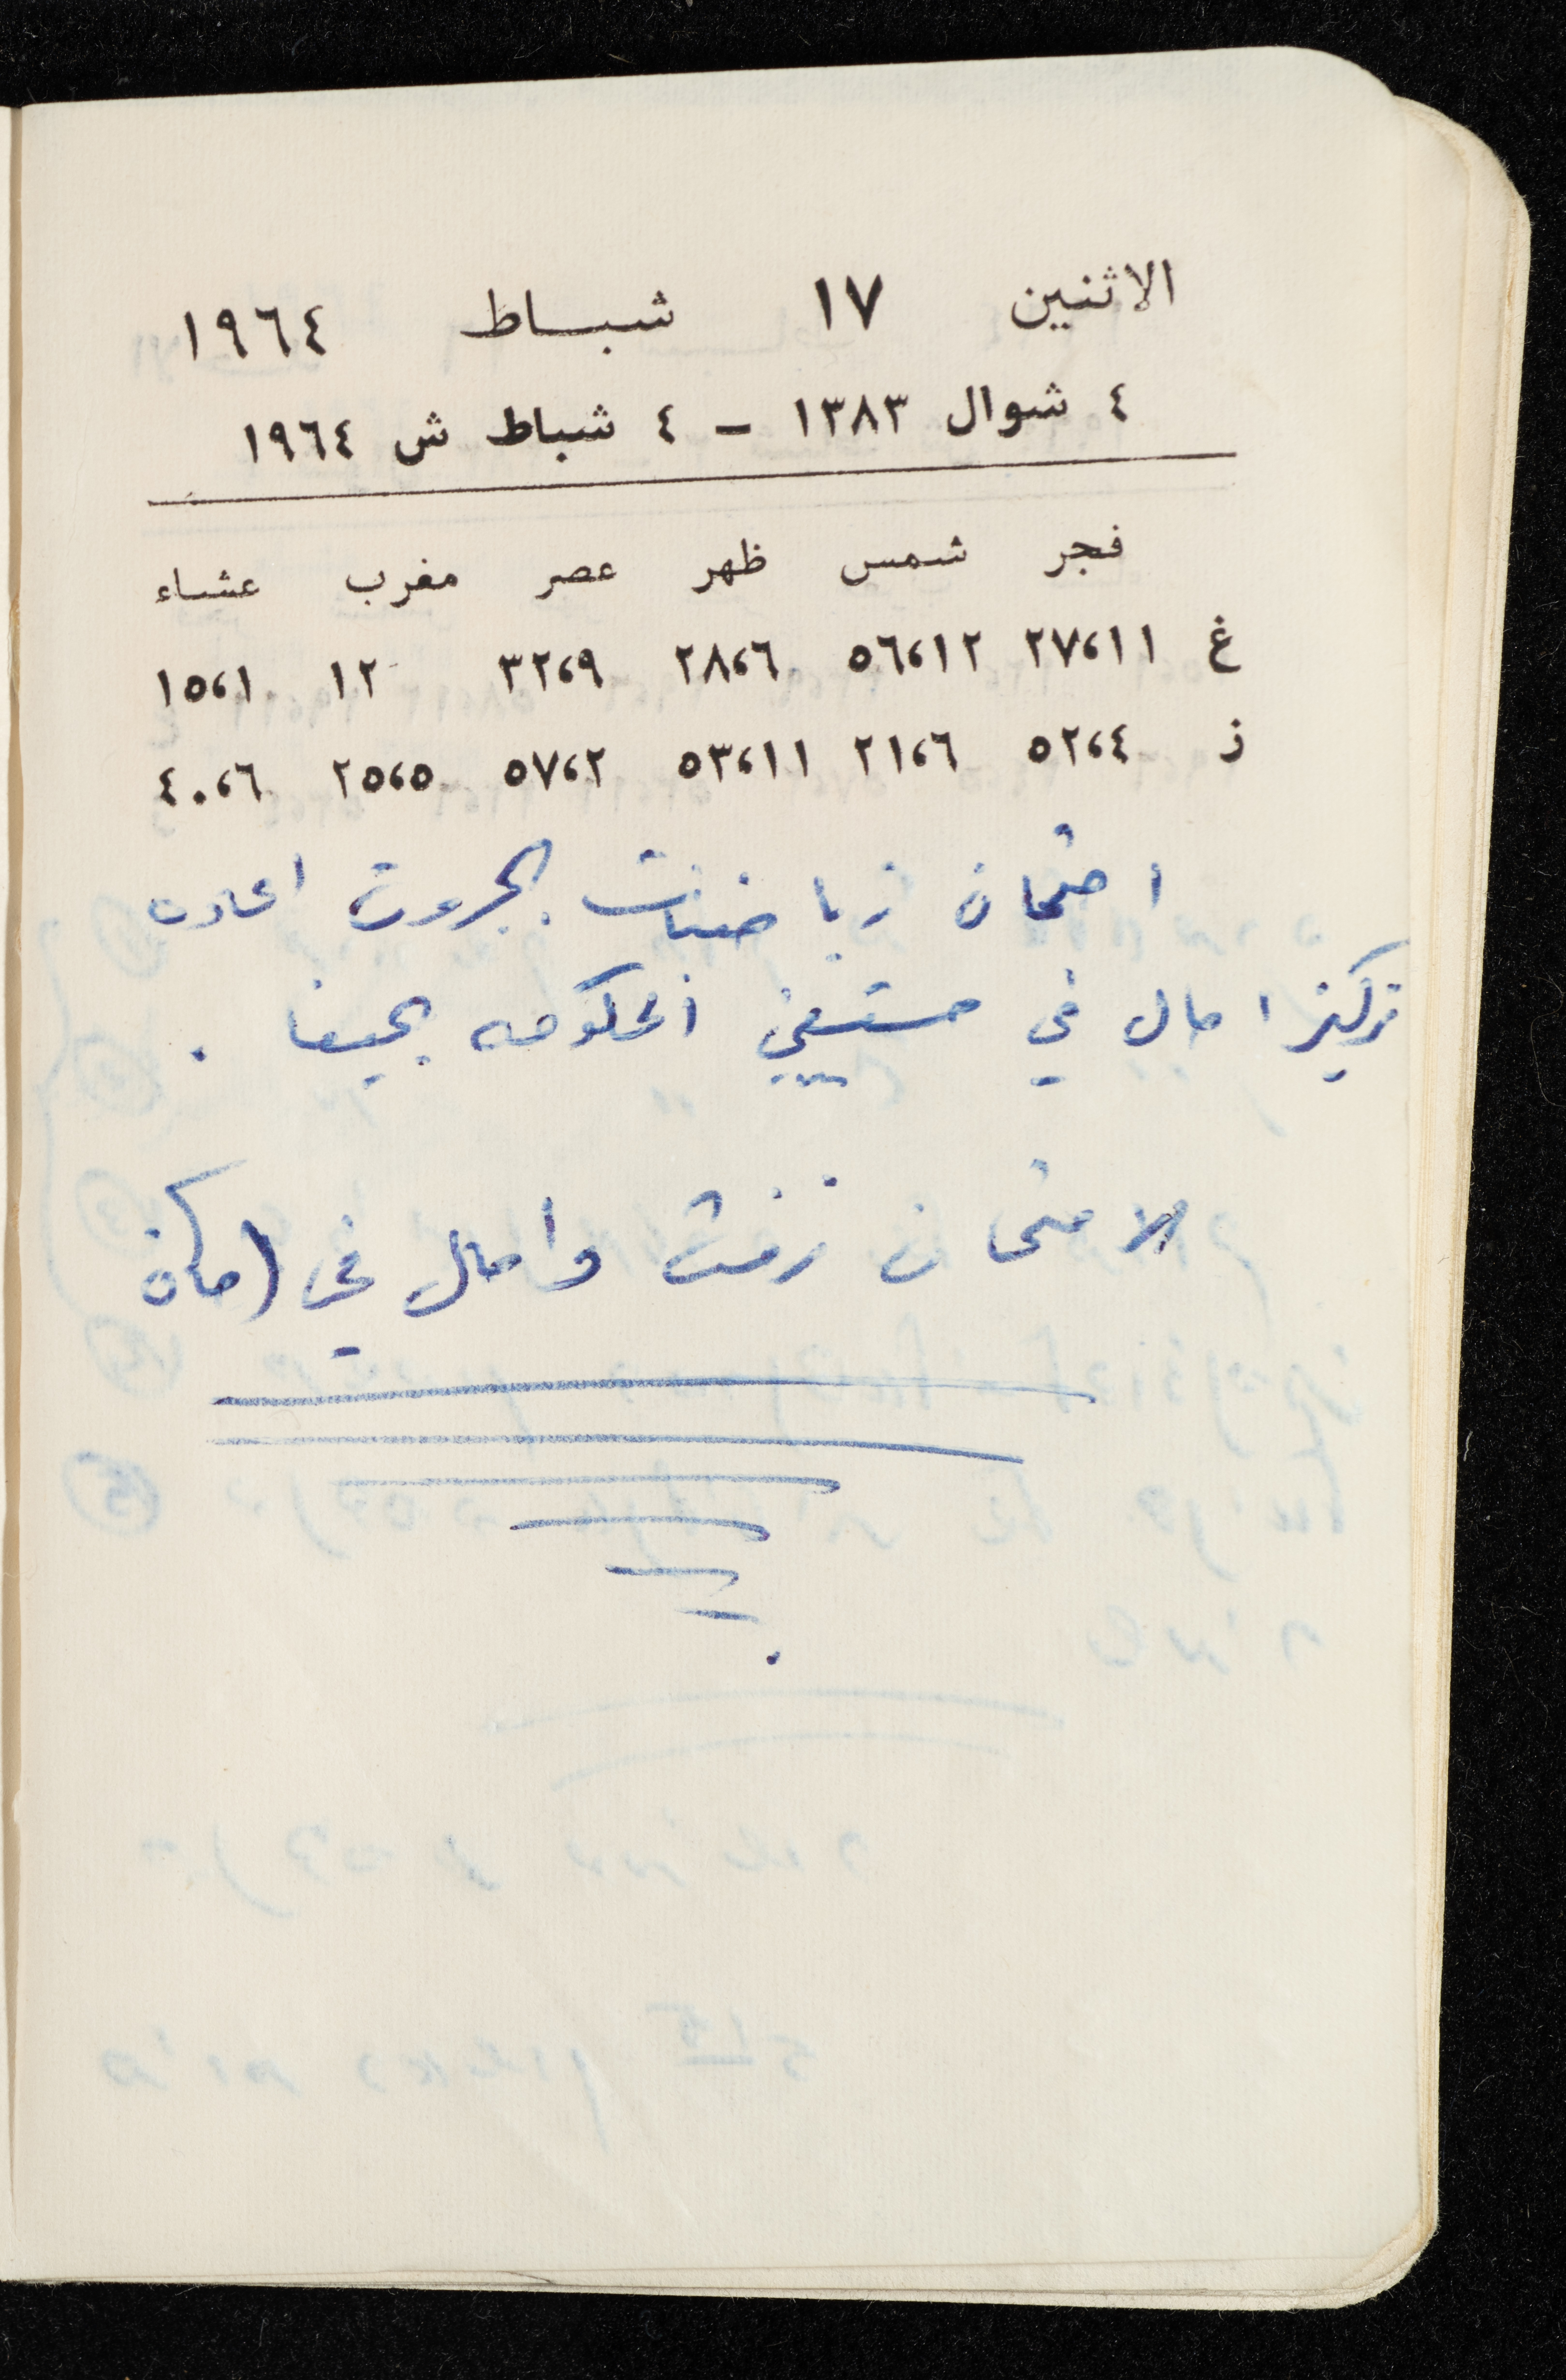 الاثنين ١٧ شباط ١٩٦٤
٤ شوال ١٣٨٣ – ٤ شباط ش ١٩٦٤
فجر شمس ظهر عصر مغرب عشاء
غ ٢٧،١١ ٥٦،١٢ ٢٨،٦ ٣٢،٩ ١٢ ١٥،١
ز ٥٢،٤ ٢١،٦ ٥٣،١١ ٥٧،٢ ٢٥،٥ ٤٠،٦
امتحان رياضيات بجروت اعاده
تركيز امال في مستشفى الحكومه بحيفا .
الامتحان زفت وامال في امكان